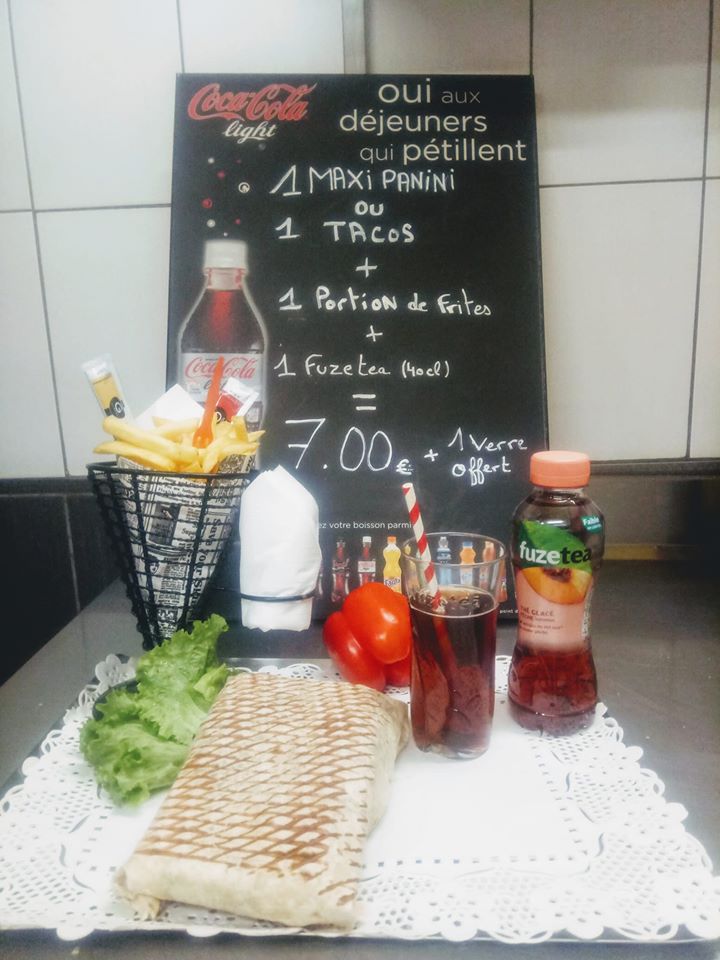 Coca-Cola
light
oui aux
déjeuners
qui pétillent
1 MAXI PANINI
OU
1 TACOS
+
1 Portion de Frites
+
1 Fuzetea (40cl)
=
7.00€ + 1 Verre
offert
Coca-Cola
ez votre boisson parmi
fuzetea
THÉ GLACÉ